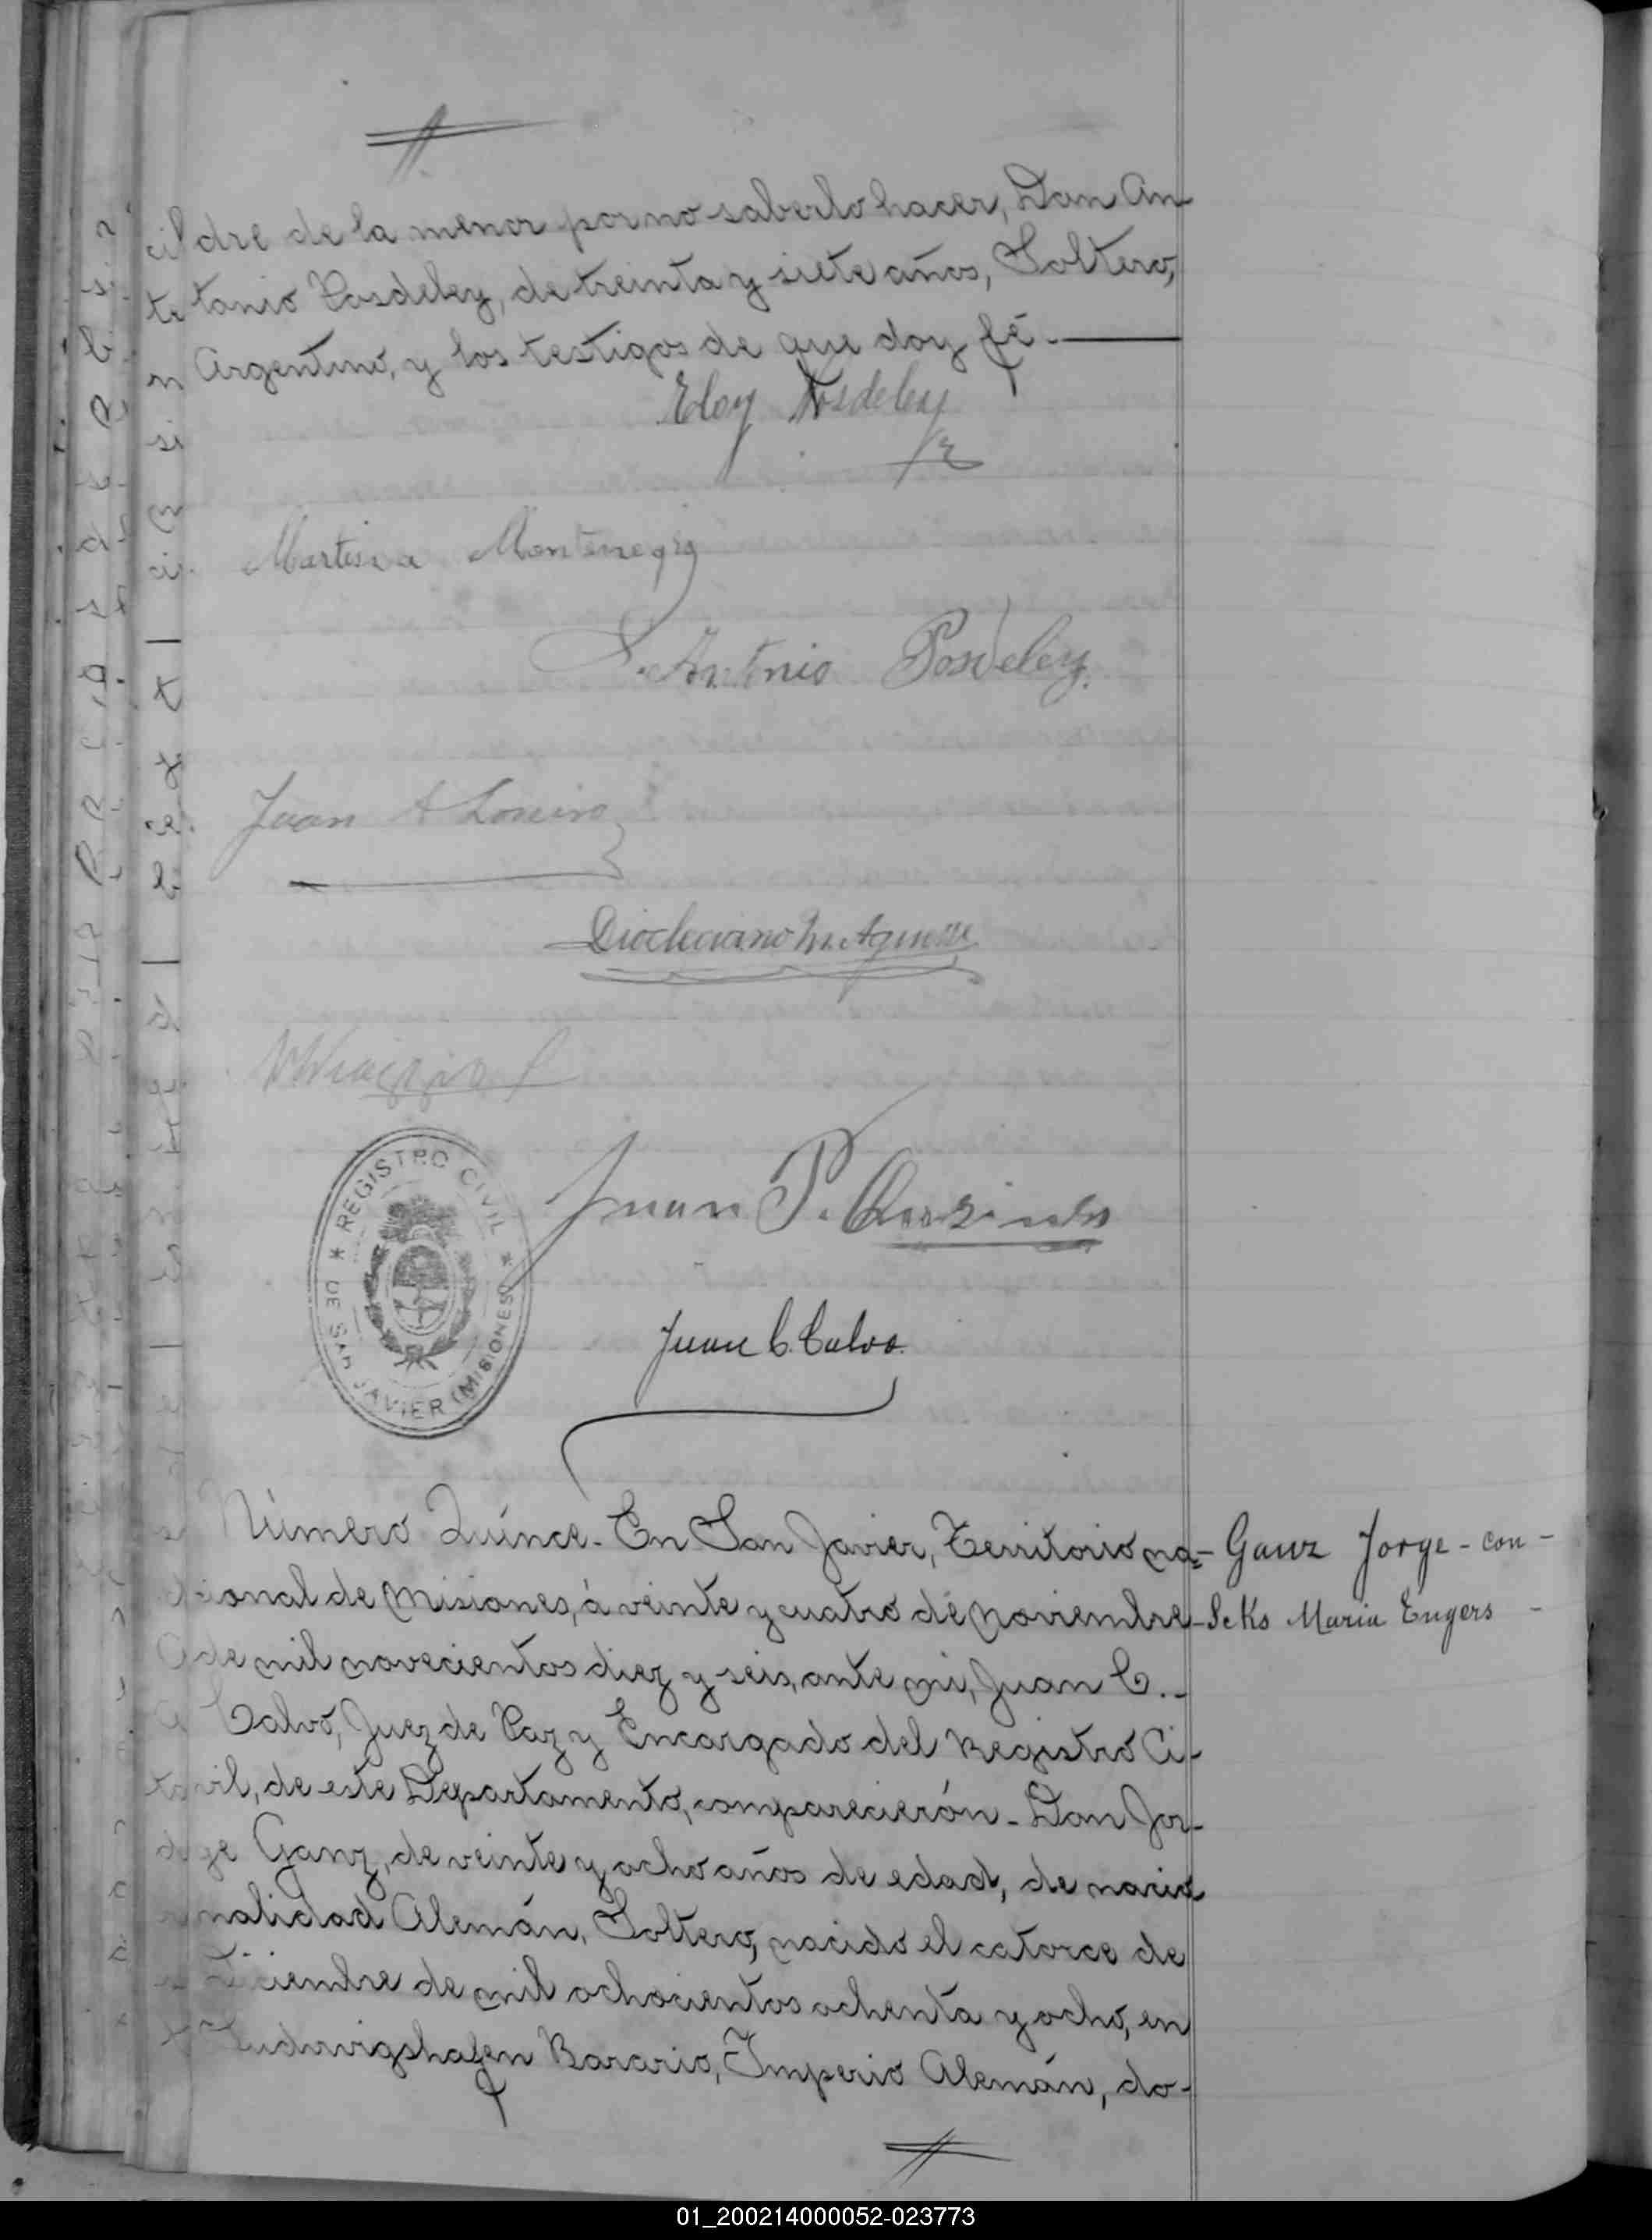 dre de la menor por no saberlo hacer, Don An-
tonio Posdeley, de treinta y siete años, Soltero,
Argentino, y los testigos de que doy fé.
Eloy Posdeley
Martina Montenegro
S. Antonio Posdeley.
Juan A Loreiro
Diocleciano M. Aguirre
REGISTRO CIVIL
DE SAN JAVIER (MISIONES)
Juan P.
Juan C. Calvo.
Número Quince. En San Javier, Territorio na-
cional de Misiones, á veinte y cuatro de noviembre
de mil novecientos diez y seis, ante mi, Juan C.
Calvo, Juez de Paz y Encargado del Registro Ci-
vil, de este Departamento, comparecierón - Don Jor-
ge Ganz, de veinte y ocho años de edad, de nacio
nalidad Alemán, Soltero, nacido el catorce de
diciembre de mil ochocientos ochenta y ocho, en
Ludwigshafen Bavario, Imperio Alemán, do-
- Ganz Jorge - con -
- Seks Maria Engers -
01_200214000052-023773